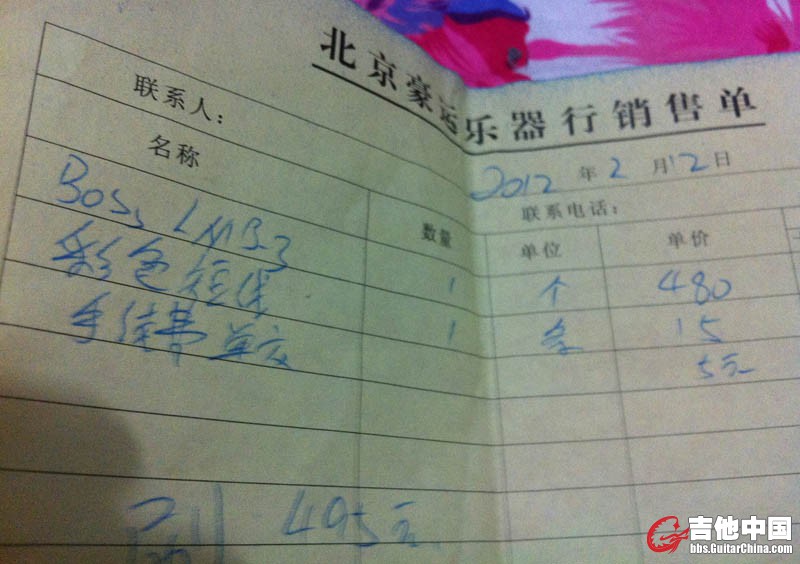 北京豪运乐器行销售单
2012 年 2 月 12 日
联系人： 联系电话：
名称 数量 单位 单价
BOSS LMB3 1 个 480
彩色短线 1 条 15
手续费 单交 5元
495元
吉他中国
bbs.GuitarChina.com